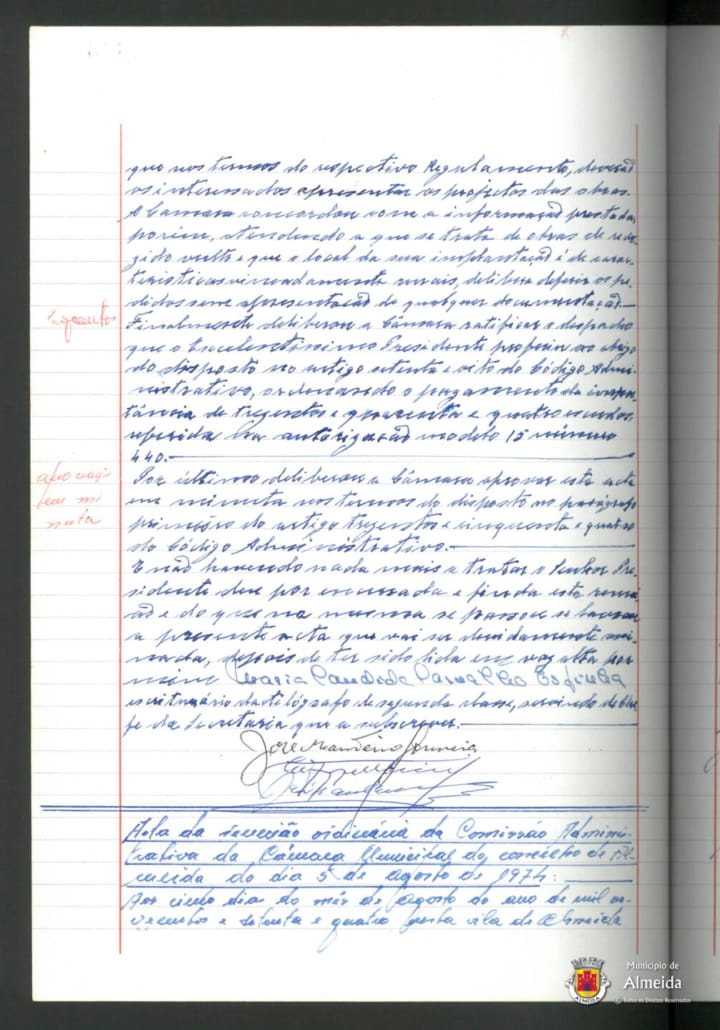 que nos termos do respectivo Regulamento, deverão
os interessados apresentar os projectos das obras.
A Câmara concordou com a informação prestada,
porém, atendendo a que se trata de obras de
vulto e que o local da sua implantação é de carac-
terísticas vincadamente rurais, delibera deferir os pe-
didos sem apresentação de qualquer documentação.—
Pagamentos
Finalmente deliberou a Câmara ratificar o despacho
que o Excelentíssimo Presidente proferiu ao abrigo
do disposto no artigo setenta e oito do Código Admi-
nistrativo, ordenando o pagamento da impor-
tância de trezentos e quarenta e quatro escudos,
referida na autorização modelo 15 número
440.—
Aprovação
em mi
nuta
Por último deliberou a Câmara aprovar esta acta
em minuta nos termos do disposto no parágrafo
primeiro do artigo trezentos e cinquenta e quatro
do Código Administrativo.—
E não havendo nada mais a tratar o Senhor Pre-
sidente deu por encerrada e finda esta reuni-
ão e do que na mesma se passou se lavrou
a presente acta que vai ser devidamente assi-
nada, depois de ter sido lida em voz alta por
mim Maria Candida Carvalho
escriturário dactilógrafo de segunda classe, servindo de che-
fe da Secretaria que a subscrevo.—
José
Acta da reunião ordinária da Comissão Adminis-
trativa da Câmara Municipal do concelho de Al-
meida do dia 5 de agosto de 1974:—
Aos cinco dias do mês de Agosto do ano de mil no-
vecentos e setenta e quatro nesta vila de Almeida
Município de
Almeida
© Todos os Direitos Reservados
ALMEIDA